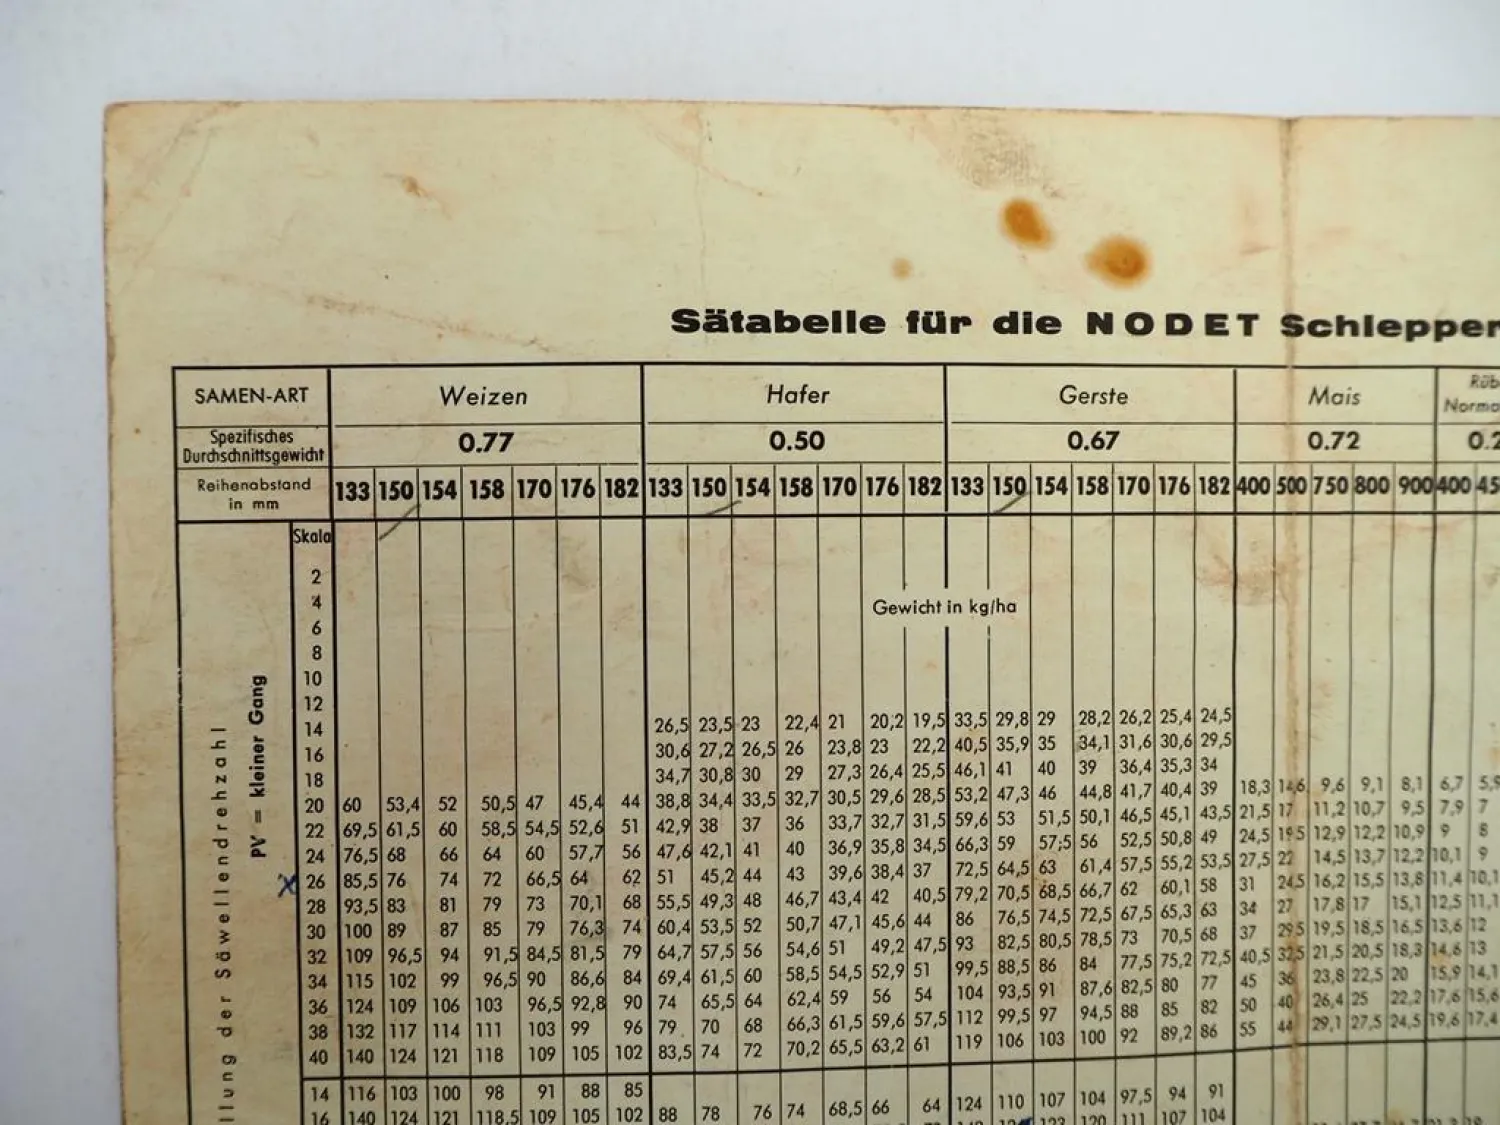 Sätabelle für die NODET Schlepper
SAMEN-ART Weizen Hafer Gerste Mais
Spezifisches Durchschnittsgewicht 0.77 0.50 0.67 0.72
Reihenabstand in mm 133 150 154 158 170 176 182 133 150 154 158 170 176 182 133 150 154 158 170 176 182 400 500 750 800 900 400 45
Skala
2
4
Gewicht in kg/ha
6
8
10
12
14 26,5 23,5 23 22,4 21 20,2 19,5 33,5 29,8 29 28,2 26,2 25,4 24,5
16 30,6 27,2 26,5 26 23,8 23 22,2 40,5 35,9 35 34,1 31,6 30,6 29,5
18 34,7 30,8 30 29 27,3 26,4 25,5 46,1 41 40 39 36,4 35,3 34
20 60 53,4 52 50,5 47 45,4 44 38,8 34,4 33,5 32,7 30,5 29,6 28,5 53,2 47,3 46 44,8 41,7 40,4 39 18,3 14,6 9,6 9,1 8,1 6,7 5,9
22 69,5 61,5 60 58,5 54,5 52,6 51 42,9 38 37 36 33,7 32,7 31,5 59,6 53 51,5 50,1 46,5 45,1 43,5 21,5 17 11,2 10,7 9,5 7,9 7
24 76,5 68 66 64 60 57,7 56 47,6 42,1 41 40 36,9 35,8 34,5 66,3 59 57,5 56 52,5 50,8 49 24,5 19,5 12,9 12,2 10,9 9 8
26 85,5 76 74 72 66,5 64 62 51 45,2 44 43 39,6 38,4 37 72,5 64,5 63 61,4 57,5 55,2 53,5 27,5 22 14,5 13,7 12,2 10,1 9
28 93,5 83 81 79 73 70,1 68 55,5 49,3 48 46,7 43,4 42 40,5 79,2 70,5 68,5 66,7 62 60,1 58 31 24,5 16,2 15,5 13,8 11,4 10,1
30 100 89 87 85 79 76,3 74 60,4 53,5 52 50,7 47,1 45,6 44 86 76,5 74,5 72,5 67,5 65,3 63 34 27 17,8 17 15,1 12,5 11,1
32 109 96,5 94 91,5 84,5 81,5 79 64,7 57,5 56 54,6 51 49,2 47,5 93 82,5 80,5 78,5 73 70,5 68 37 29,5 19,5 18,5 16,5 13,6 12
34 115 102 99 96,5 90 86,6 84 69,4 61,5 60 58,5 54,5 52,9 51 99,5 88,5 86 84 77,5 75,2 72,5 40,5 32,5 21,5 20,5 18,3 14,6 13
36 124 109 106 103 96,5 92,8 90 74 65,5 64 62,4 59 56 54 104 93,5 91 87,6 82,5 80 77 45 36 23,8 22,5 20 15,9 14,1
38 132 117 114 111 103 99 96 79 70 68 66,3 61,5 59,6 57,5 112 99,5 97 94,5 88 85 82 50 40 26,4 25 22,2 17,6 15,6
40 140 124 121 118 109 105 102 83,5 74 72 70,2 65,5 63,2 61 119 106 103 100 92 89,2 86 55 44 29,1 27,5 24,5 19,6 17,4
14 116 103 100 98 91 88 85
16 140 124 121 118,5 109 105 102 88 78 76 74 68,5 66 64 124 110 107 104 97,5 94 91
PV = kleiner Gang
llung der Säwellendrehzahl